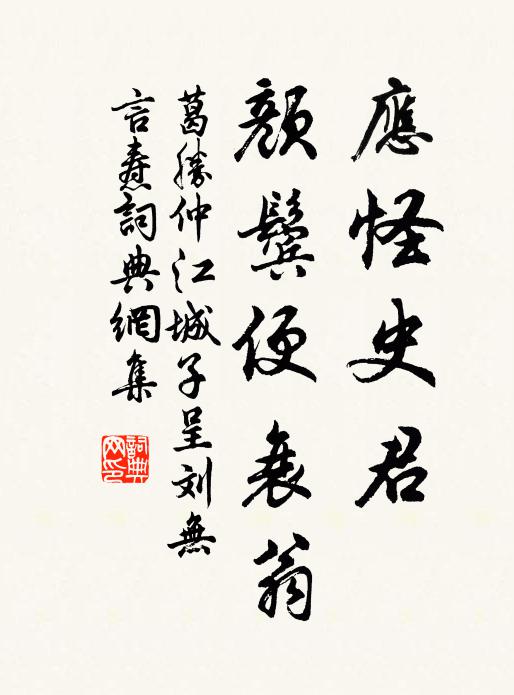 應怪史君
顏鬢便衰翁
葛勝仲江城子呈刘無
言焘詞典網集
詞典网印